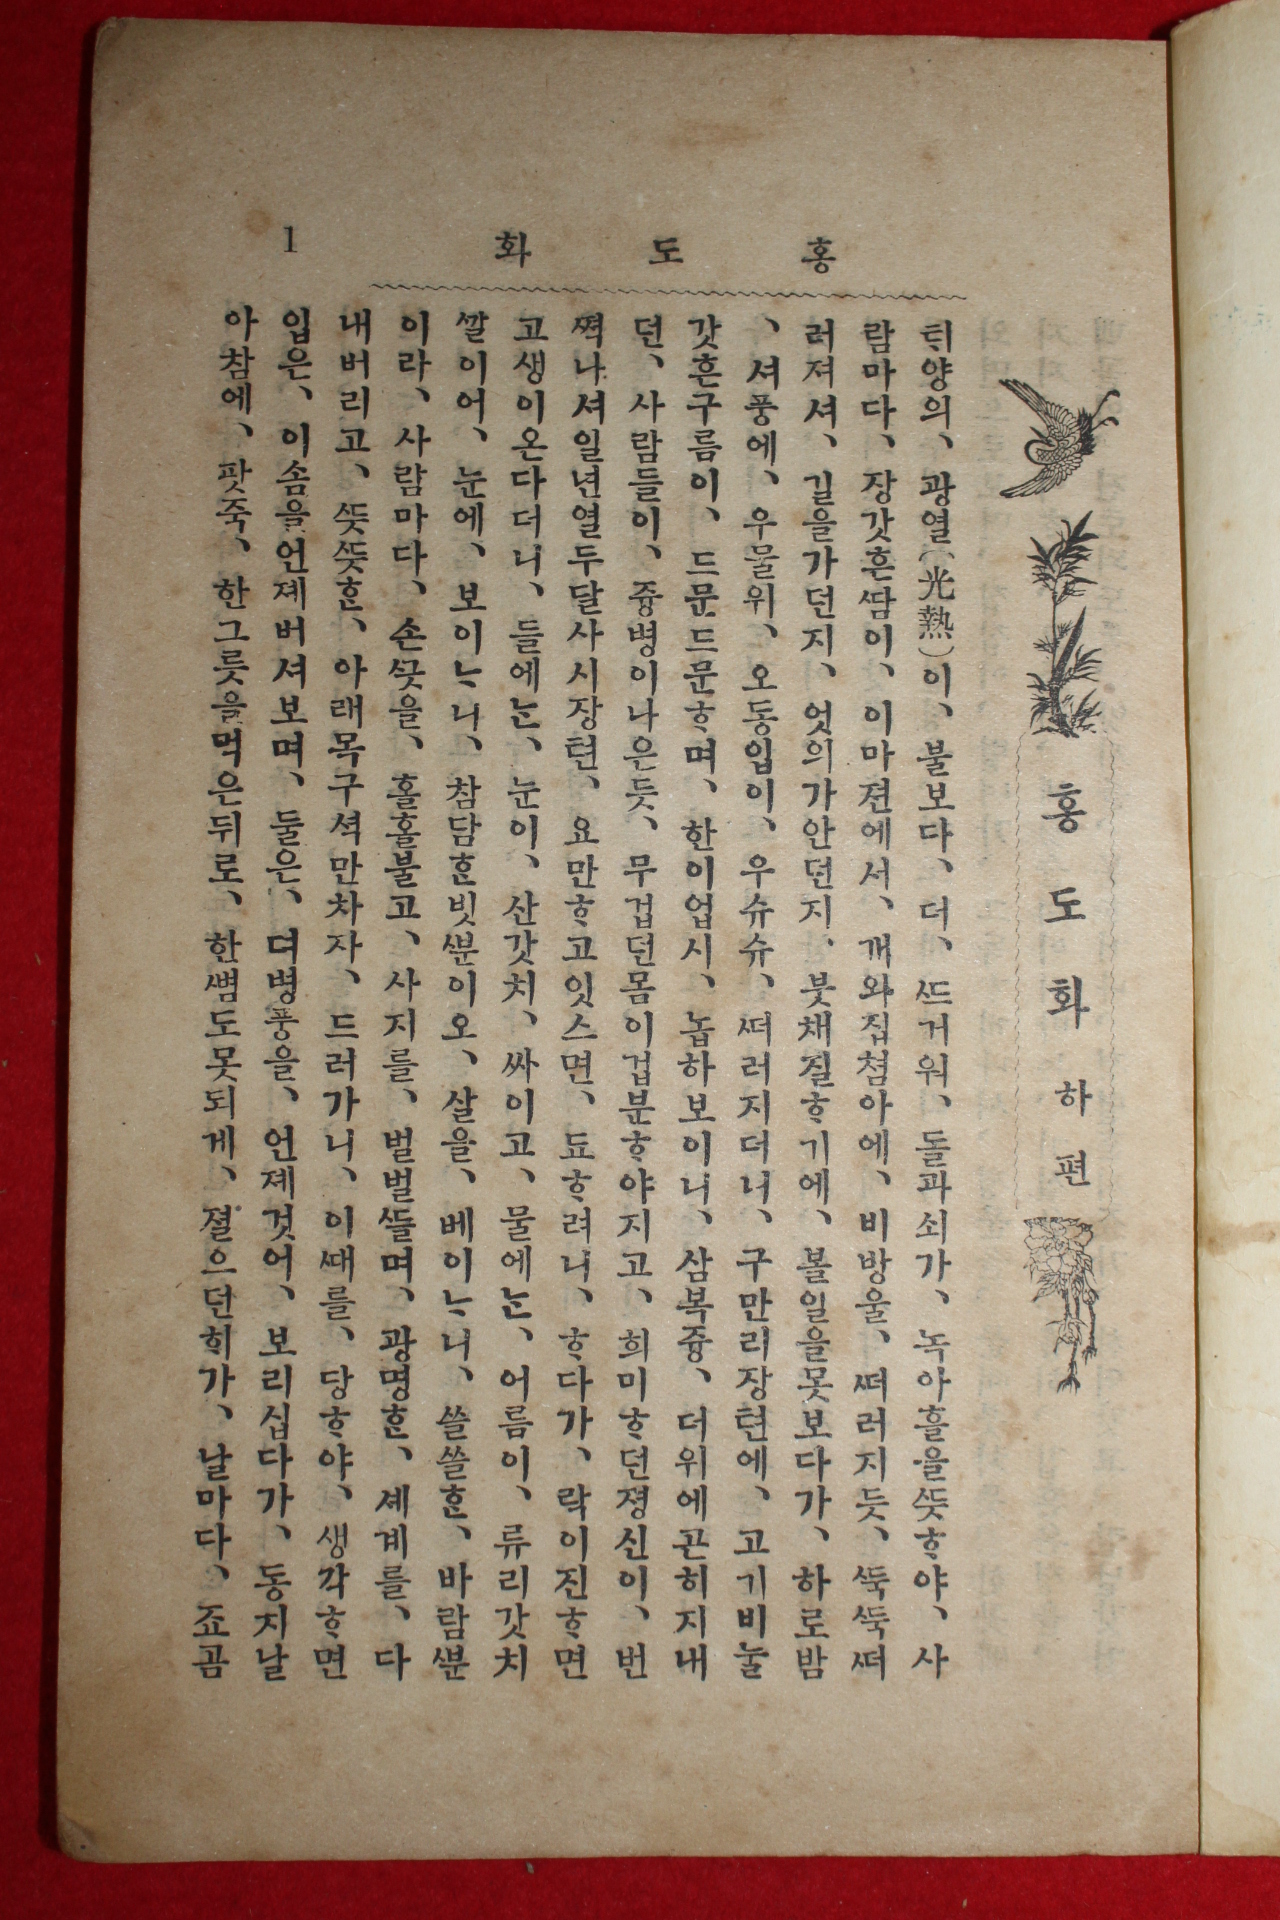 홍도화 1
홍도화 하편
ᄐᆡ양의、광열(光熱)이、불보다、더、ᄯᅳ거워、돌과쇠가、녹아흘을ᄯᅳᆺᄒᆞ야、사
람마다、장갓흔ᄯᅡᆷ이、이마젼에서、개와집쳠아에、비방울、ᄯᅥ러지듯、ᄯᅮᆨᄯᅮᆨᄯᅥ
러져셔、길을가던지、엇의가안던지、붓채질ᄒᆞ기에、볼일을못보다가、하로밤
、셔풍에、우물위、오동입이、우슈슈、ᄯᅥ러지더니、구만리장텬에、고기비눌
갓흔구름이、드문드문ᄒᆞ며、한이업시、놉하보이니、삼복즁、더위에곤히지내
던、사람들이、즁병이나은듯、무겁던몸이겁분ᄒᆞ야지고、희미ᄒᆞ던졍신이、번
ᄶᅥᆨ나셔일년열두달사시장텬、요만ᄒᆞ고잇스면、됴ᄒᆞ려니、ᄒᆞ다가、락이진ᄒᆞ면
고생이온다더니、들에ᄂᆞᆫ、눈이、산갓치、싸이고、물에ᄂᆞᆫ、어름이、류리갓치
ᄭᅡᆯ이어、눈에、보이ᄂᆞ니、참담ᄒᆞᆫ빗ᄲᅮᆫ이오、살을、베이ᄂᆞ니、쓸쓸ᄒᆞᆫ、바람ᄲᅮᆫ
이라、사람마다、손ᄭᅳᆺ을、홀홀불고、사지를、벌벌ᄯᅥᆯ며、광명ᄒᆞᆫ、셰계를、다
내버리고、ᄯᅳᆺᄯᅳᆺᄒᆞᆫ、아래목구셕만차자、드러가니、이ᄯᅢ를、당ᄒᆞ야、생각ᄒᆞ면
입은、이솜을언졔버셔보며、둘은、뎌병풍을、언졔것어、보리십다가、동지날
아참에、팟죽、한그릇을먹은뒤로、한ᄲᅧᆷ도못되게、졀으던ᄒᆡ가、날마다、죠곰